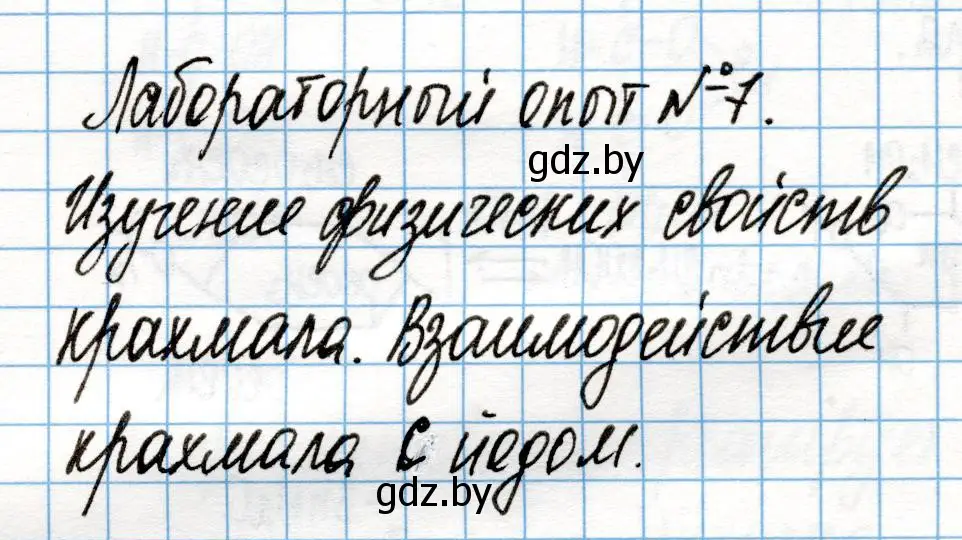 Лабораторный опыт №7.
gdz.by
Изучение физических свойств
крахмала. Взаимодействие
крахмала с йодом.
gdz.by